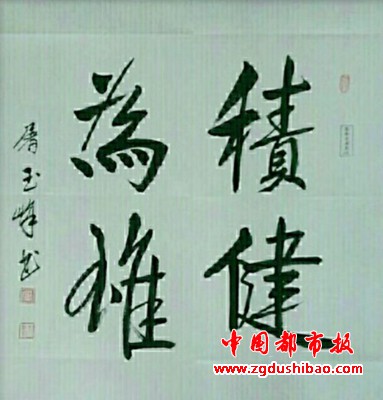 積健
為雄
屠玉峰书
中国都市报
www.zgdushibao.com